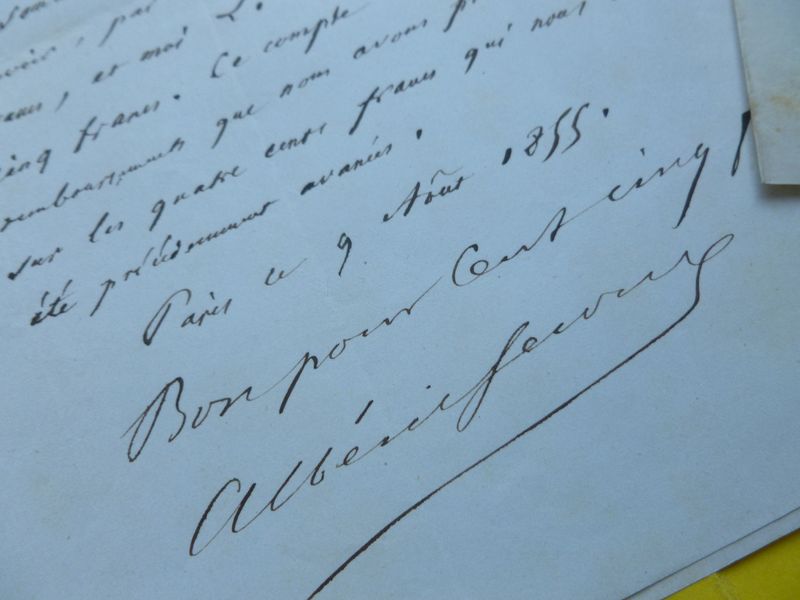 par
et moi L.
cinq francs. Ce compte
remboursements que nous avons
sur les quatre cents francs qui nous
été précédemment avancés.
Paris le 9 Août 1855.
Bon pour Cent cinq
Albéric Second